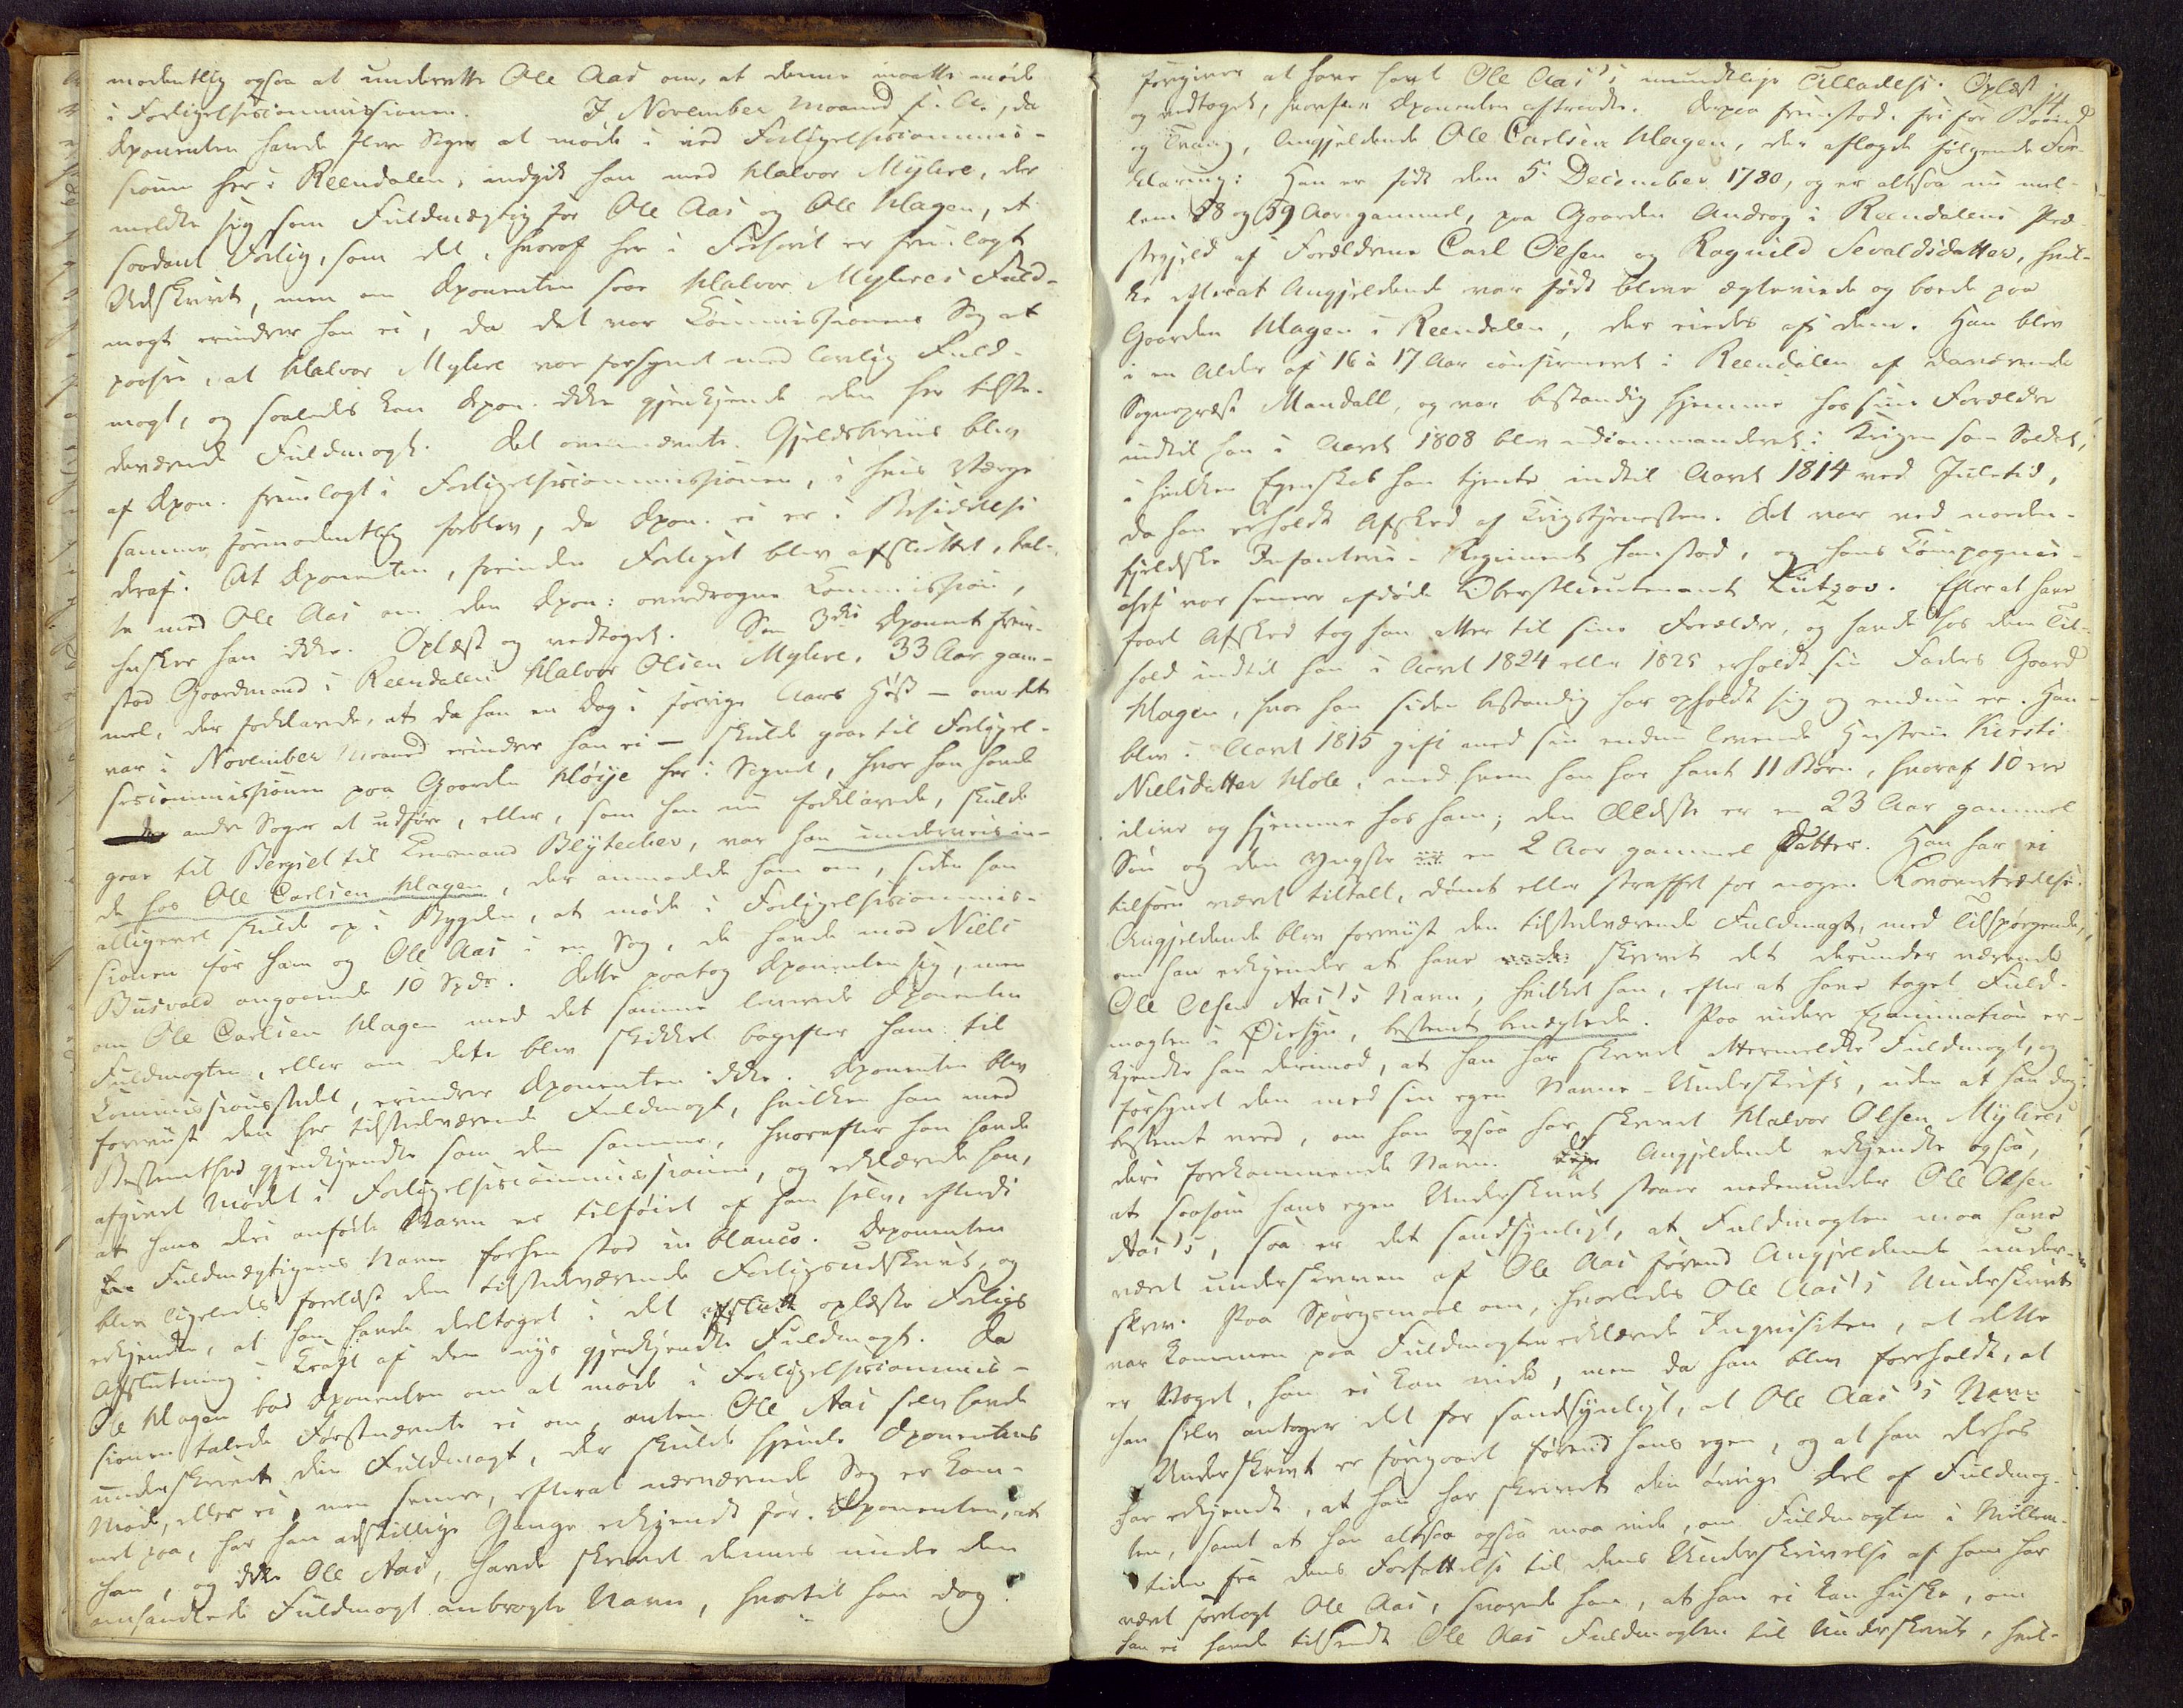 modentlig ogsaa at underrette Ole Aas om, at denne maatte møde
i Forligelsescommissionen. I November Maaned f. A., da
Deponenten havde flere Sager at møde i ved Forligelsescommis-
sionen her i Reendalen, indgik han med Halvor Mylere, der
meldte sig som Fuldmægtig for Ole Aas og Ole Hagen, et
saadant Forlig, som det, hvoraf her i Forhøret er fremlagt
Udskrivt, men om Deponenten saae Halvor Myleres Fuld-
magt erindrer han ei, da det var Commissionens Sag at
paasee, at Halvor Mylere var forsynet med lovlig Fuld-
magt, og saaledes kan Depon. ikke gjenkjende den her tilste-
deværende Fuldmagt. Det ovennævnte Gjeldsbeviis blev
af Depon. fremlagt i Forligelsescommissionen, i hvis Værge
samme formodentlig forblev, da Depon. ei er i Besiddelse
deraf. At Deponenten, forinden Forliget blev afsluttet, tal-
te med Ole Aas om den Depon: overdragne Commission,
husker han ikke. Oplæst og vedtaget. Som 3die Deponent frem-
stod Gaardmand i Reendalen Halvor Olsen Mylere, 33 Aar gam-
mel, der forklarede, at da han en Dag i forrige Aars Høst – om det
var i November Maaned erindrer han ei – skulde gaae til Forligel-
sescommissionen paa Gaarden Høije her i Sognet, hvor han havde
andre Sager at udføre, eller, som han nu forklarede, skulde
gaae til Berget til Lensmand Blytecher, var han underveis in-
de hos Ole Carlsen Hagen, der anmodede ham om, siden han
alligevel skulde op i Bygden, at møde i Forligelsescommis-
sionen for ham og Ole Aas i en Sag, de havde mod Niels
Busvold angaaende 10 Spdr. Dette paatog Deponenten sig, men
om Ole Carlsen Hagen med det samme leverede Deponenten
Fuldmagten, eller om dette blev skikket bagefter ham til
Commissionsstedet, erindrer Deponenten ikke. Deponenten blev
foreviist den her tilstedeværende Fuldmagt, hvilken han med
Bestemthed gjenkjendte som den samme, hvorefter han havde
afgivet Mødet i Forligelsescommissionen, og erklærede han,
at hans deri anførte Navn er tilføiet af ham selv, efterdi
Fuldmægtigens Navn forhen stod in blanco. Deponenten
blev ligeledes forelæst den tilstedeværende Forligsudskrivt, og
erkjendte, at han havde deeltaget i det oplæste Forligs
Afslutning i Kraft af den nys gjenkjendte Fuldmagt. Da
Ole Hagen bad Deponenten om at møde i Forligelsescommis-
sionen talede Førstnævnte ei om, enten Ole Aas selv havde
underskrevet den Fuldmagt, der skulde hjemle Deponentens
Møde, eller ei, men senere, efterat nærværende Sag er kom-
met paa, har han adskillige Gange erkjendt for Deponenten, at
han, og ikke Ole Aas, havde skrevet dennes under den
omhandlede Fuldmagt anbragte Navn, hvortil han dog
14
foregiver at have havt Ole Aas's mundtlige Tilladelse. Oplæst
og vedtaget, hvorefter Deponenten aftraadte. Derpaa fremstod, fri for Baand
og Tvang, Angjeldende Ole Carlsen Hagen, der aflagde følgende For-
klaring: Han er født den 5. December 1780, og er altsaa nu mel-
lem 58 og 59 Aar gammel, paa Gaarden Androg i Reendalens Præ-
stegjeld af Forældrene Carl Olsen og Ragnild Sevaldsdatter, hvil-
ke efterat Angjeldende var født bleve ægteviede og boede paa
Gaarden Hagen i Reendalen, der eiedes af dem. Han blev
i en Alder af 16 à 17 Aar confirmeret i Reendalen af daværende
Sognepræst Mandall, og var bestandig hjemme hos sine Forældre
indtil han i Aaret 1808 blev udcommanderet i Krigen som Soldat,
i hvilken Egenskab han tjente indtil Aaret 1814 ved Juletid,
da han erholdt Afsked af Krigstjenesten. Det var ved norden-
fjeldske Infanterie-Regiment han stod, og hans Compagnie-
chef var senere afdøde Oberstlieutenant Lützov. Efter at have
faaet Afsked tog han atter til sine Forældre, og havde hos dem Til-
hold indtil han i Aaret 1824 eller 1825 erholdt sin Faders Gaard
Hagen, hvor han siden bestandig har opholdt sig og endnu er. Han
blev i Aaret 1815 gift med sin endnu levende Hustrue Kersti
Nielsdatter Hole, med hvem han har havt 11 Børn, hvoraf 10 ere
ilive og hjemme hos ham; den Ældste er en 23 Aar gammel
Søn og den Yngste en 2 Aar gammel Datter. Han har ei
tilforn været tiltalt, dømt eller straffet for nogen Lovovertrædelse.
Angjeldende blev foreviist den tilstedeværende Fuldmagt, med Tilspørgende,
om han erkjender at have skrevet det derunder værende
Ole Olsen Aas's Navn, hvilket han, efter at have taget Fuld-
magten i Øiesyn, bestemt benægtede. Paa videre Examination er-
kjendte han derimod, at han har skrevet oftermeldte Fuldmagt, og
forsynet den med sin egen Navne-Underskrift, uden at han dog
bestemt veed, om han ogsaa har skrevet Halvor Olsen Myleres
deri forekommende Navn. Angjeldende erkjendte ogsaa,
at saasom hans egen Underskrivt staaer nedenunder Ole Olsen
Aas's, saa er det sandsynligt, at Fuldmagten maa have
været underskreven af Ole Aas førend Angjeldende under-
skrev. Paa Spørgsmaal om, hvorledes Ole Aas's Underskrivt
var kommen paa Fuldmagten erklærede Inqvisiten, at dette
er Noget, han ei kan vide, men da han blev foreholdt, at
han selv antager det for sandsynligt, at Ole Aas's Navn
Underskrivt er foregaaet førend hans egen, og at han derhos
har erkjendt, at han har skrevet den øvrige Deel af Fuldmag-
ten, samt at han altsaa ogsaa maa vide, om Fuldmagten i Mellem-
tiden fra dens Forfattelse til dens Underskrivelse af ham har
været forelagt Ole Aas, svarede han, at han ei kan huske, om
han ei havde tilsendt Ole Aas Fuldmagten til Underskrivt, hvil-